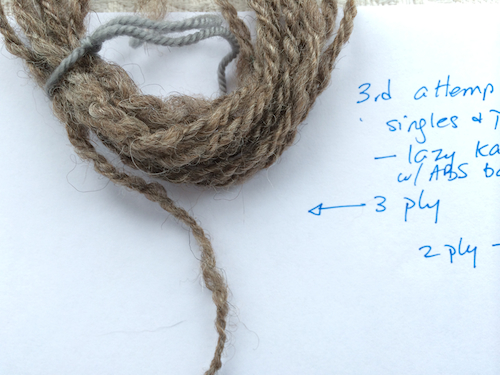 3rd attemp
singles &
- lazy Ka
w/ ABS
← 3 ply
2 ply -